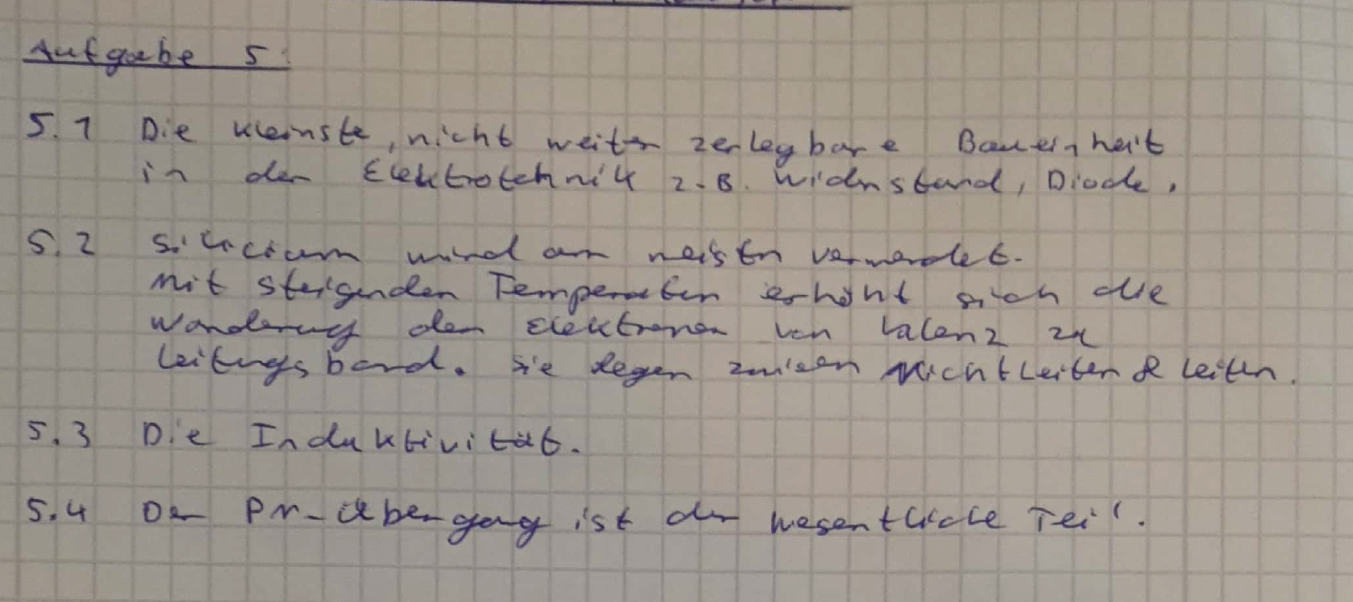 Aufgabe 5:
5.1 Die kleinste, nicht weiter zerlegbare Baueinheit
in der Elektrotechnik z.B. Widerstand, Diode.
5.2 Silicium wird am meisten verwendet.
Mit steigenden Temperaturen erhöht sich die
Wanderung der Elektronen von Valenz zu
Leitungsband. Sie liegen zwischen Nichtleiter & Leiter.
5.3 Die Induktivität.
5.4 Der PN-Übergang ist der wesentliche Teil.